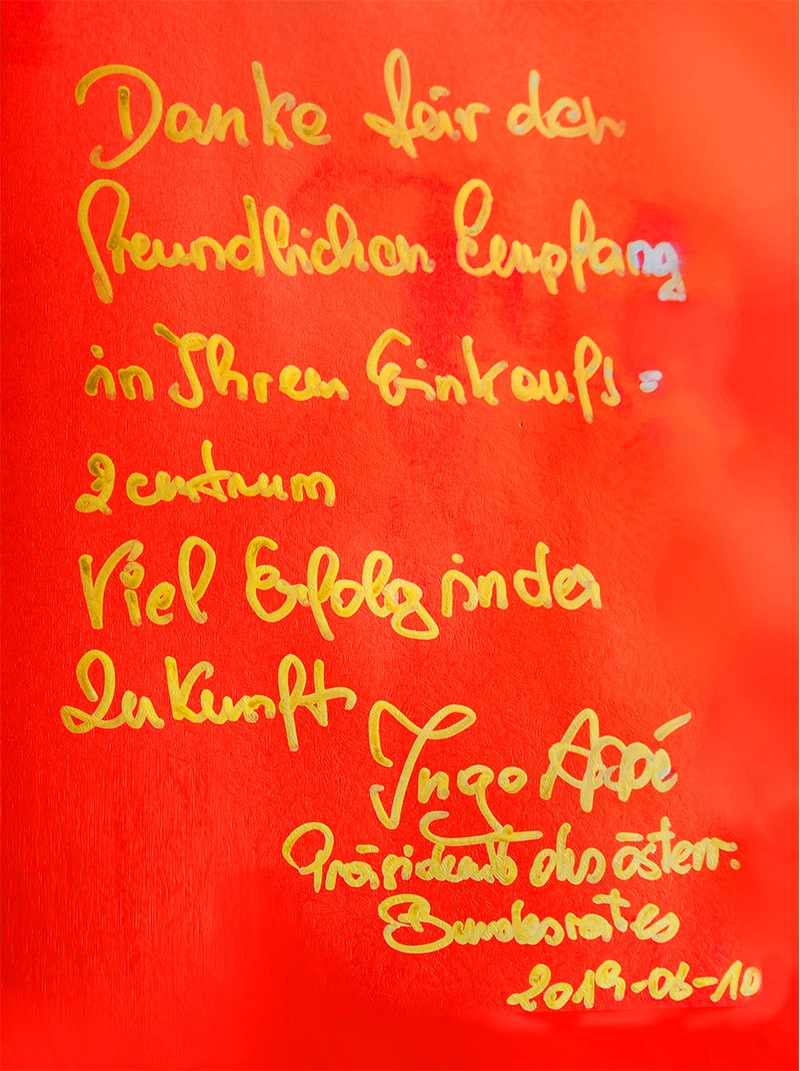 Danke für den
freundlichen Empfang
in Ihrem Einkaufs=
zentrum
Viel Erfolg in der
Zukunft
Ingo Appé
Präsident des österr.
Bundesrates
2019-06-10